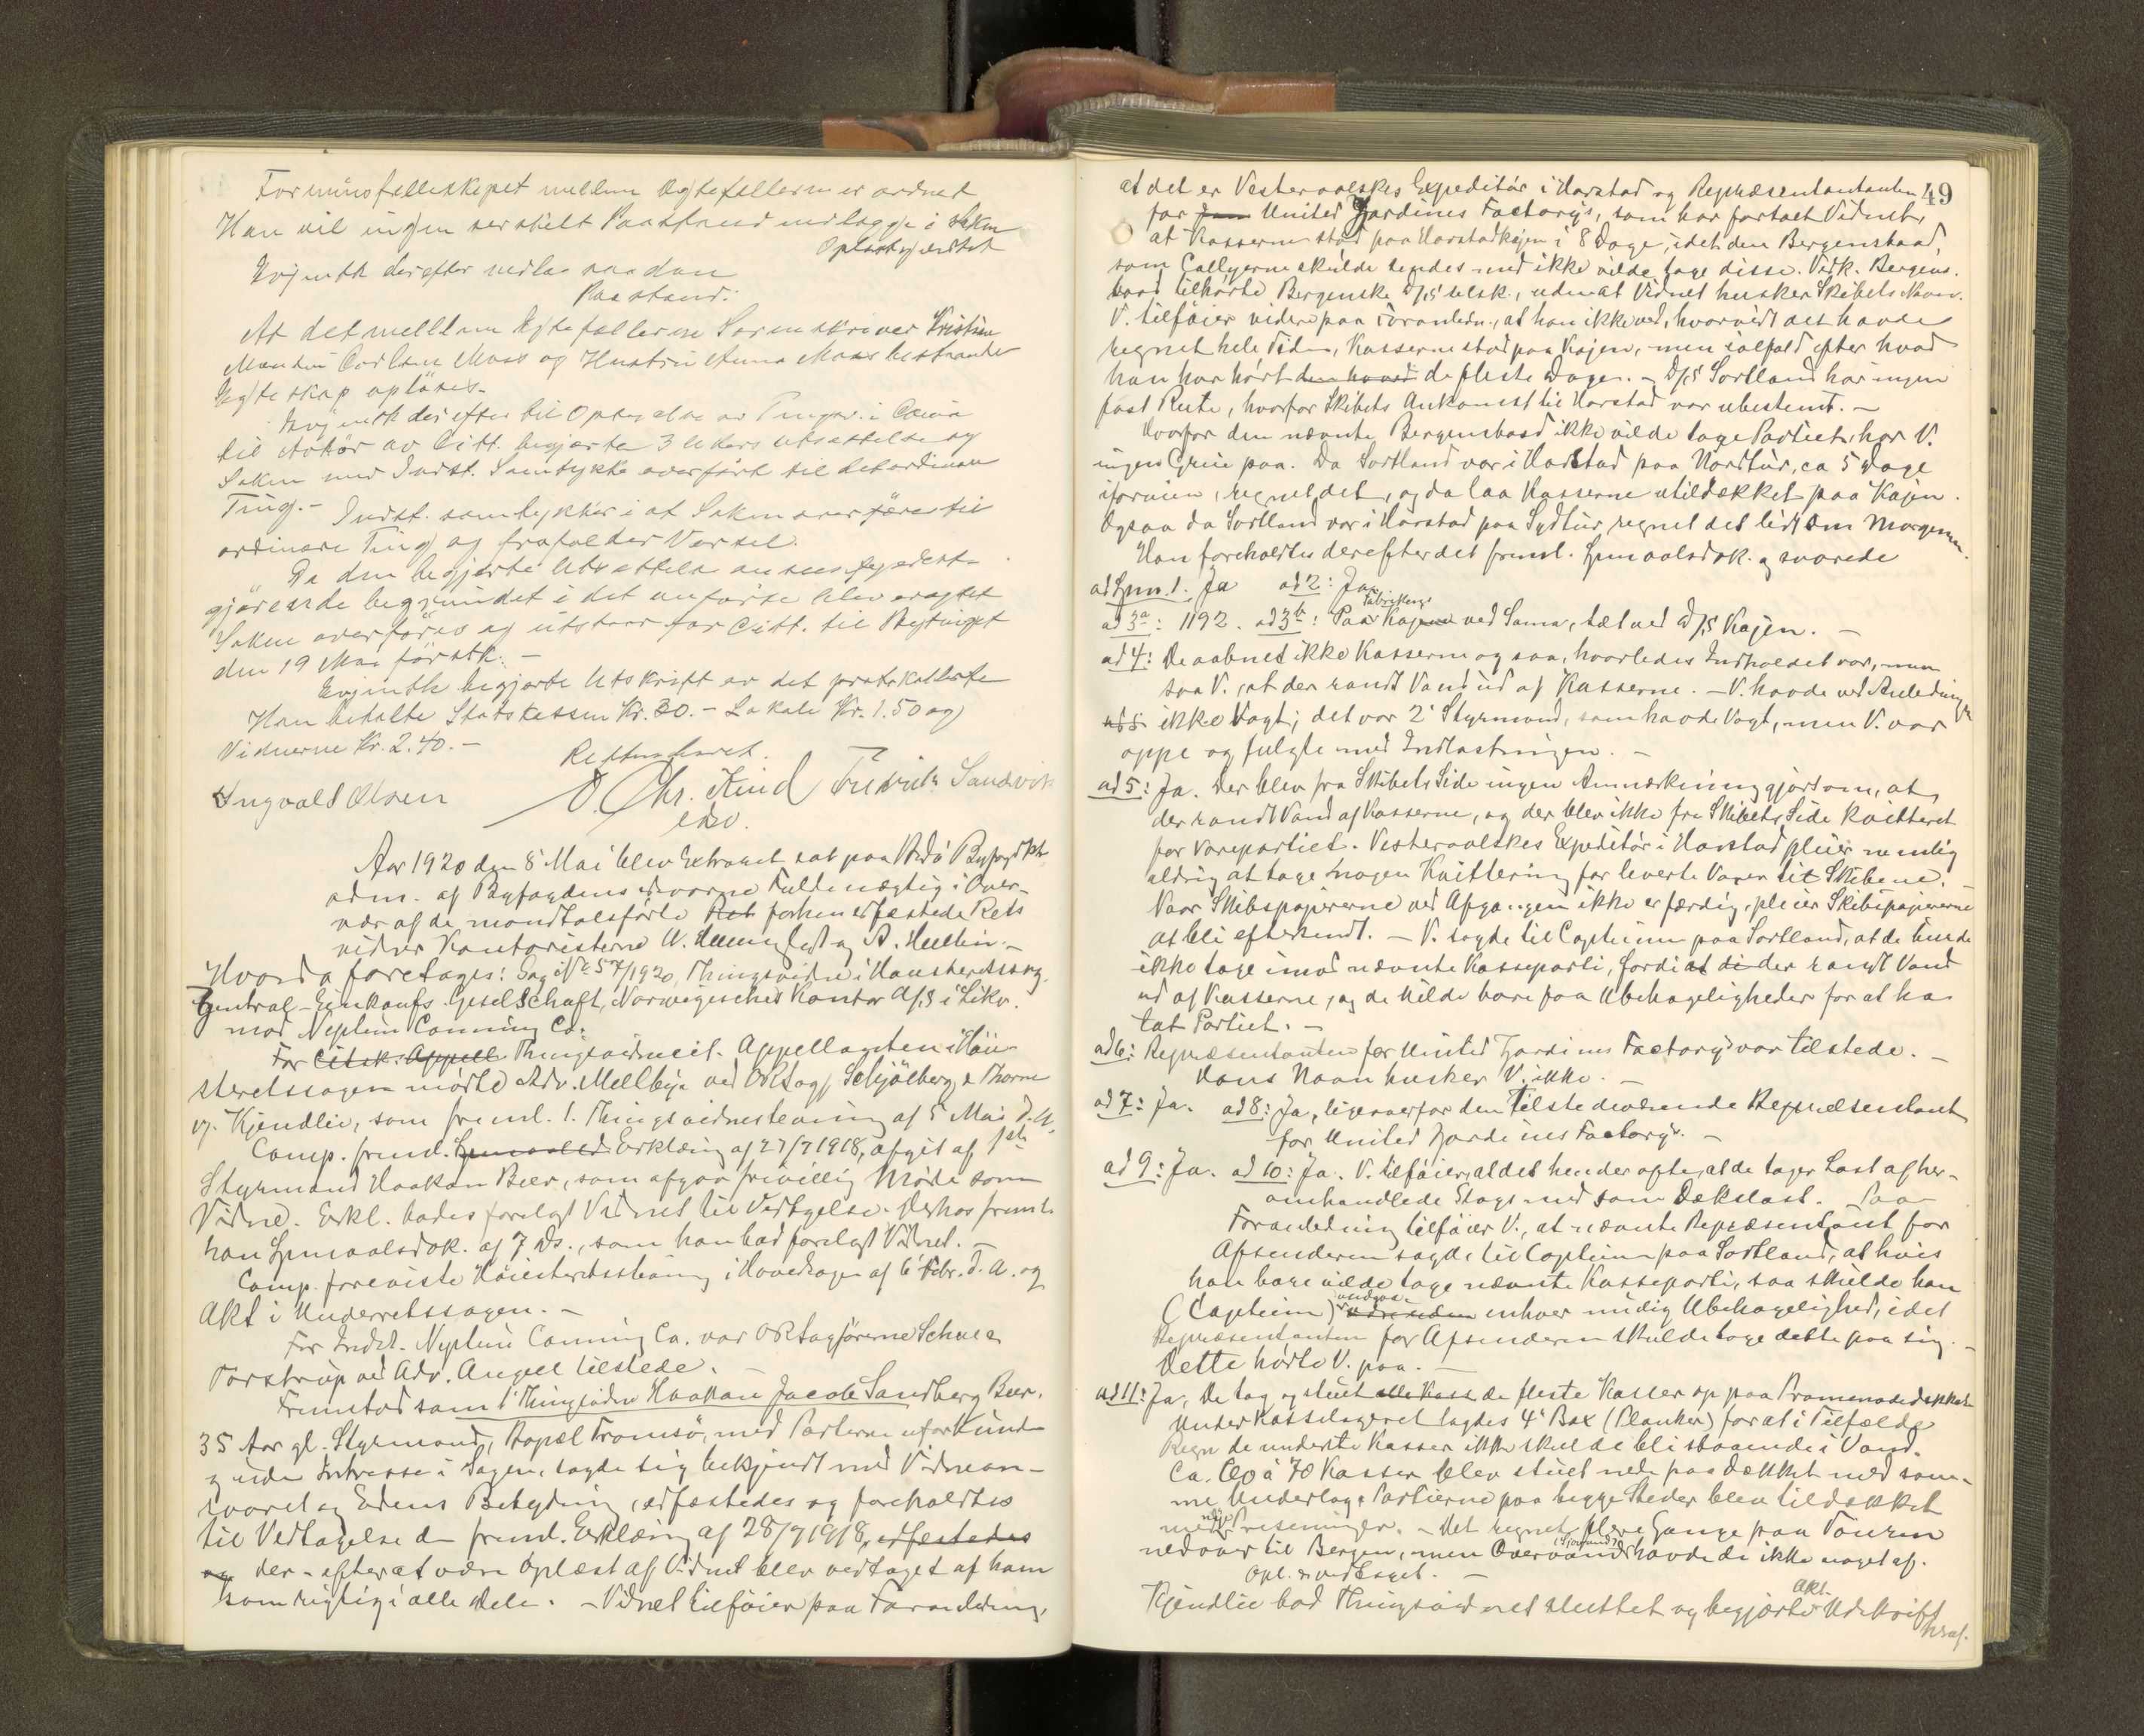 Formuesfelleskapet mellem Egtefellerne er ordnet
Han vil ingen serskilt Paastand nedlægge i Saken
Oplæst vedtat
Evjenth derefter nedla saadan
Paastand:
At det mellem Egtefellerne Sorenskriver Kristian
Carlsen Moss og Hustru Anna Moss bestaaende
Egteskap opløses.
Evjenth derefter til Optagelse av
til av Citt. begjærte 3 Ukers Utsættelse og
Saken med Indst. Samtykke overført til det ordinære
Ting. - Indst. samtykker i at Saken overføres til
ordinære Ting og frafalder Varsel.
Da den begjærte Utsættelse ansees fyldest-
gjørende begrundet i det anførte blev eragtet
Saken overføres og utstaar for Citt. til Bytinget
den 19 Mai førstk. -
Evjenth begjærte Utskrift av det protokollerte
Han betalte Statskassen Kr. 30. - Lokale Kr. 1.50 og
Vidnerne Kr. 2.40. -
Retten hævet.
Ingvald Olsen O. Chr. Kind Fredrik Sandvik
Aar 1920 den 8 Mai blev Extraret sat paa Bodø Byfogdkt.
adm. af Byfogdens edsvorne Fuldmægtig i Over-
vær af de mandtalsførte Ret forhen edfæstede Rets
vidner Kontoristerne
Hvorda foretages: Sag No 57/1920, Thingsvidne i Høiesteretssag.
Central-Einkaufs-Gesellschaft, Norwegisches Kontor A/S i Likv.
mod Neptun Canning Co.
For Citsk. Appell Thingsvidnecit. Appellanten i Høie-
steretssagen mødte Adv. Mellbye ved ORsagf. Schjølberg &
v. Kjendlie, som freml. 1. Thingsvidnestevning af 5 Mai d.A.
Comp. freml. Spmaalsd Erklæring af 27/7 1918, afgit af 1ste
Styrmand Haakon Beer, som afgav frivillig Møde som
Vidne. Erkl. bades forelagt Vidnet til Vedtagelse. Derhos freml.
han Spmaalsdok. af 7 ds., som han bad forelagt Vidnet. -
Comp. foreviste Høiesteretsstevning i Hovedsagen af 6 Febr. d. A. og
Akt i Underretssagen. -
For Indst. Neptun Canning Co. var ORsagførerne Schue &
Torstrup ved Adv. Angell tilstede. -
Fremstod som 1' Thingsvidne Haakon Jacob Sandberg Beer,
35 Aar gl. Styrmand, Bopæl Tromsø, med Parterne uforbunden
og uden Intresse i Sagen, sagde sig bekjendt med Vidnean-
svaret og Edens Betydning, edfæstedes og foreholdtes
til Vedtagelse den freml. Erklæring af 28/7 1918, edfæstedes
og der - efter at være oplæst af Vidnet blev vedtaget af ham
som rigtig i alle Dele. - Vidnet tilføier paa Foranledning,
49
at det er Vesteraalskes Expeditør i Harstad og Repræsentantanten
for Jam United Sardines Factorys, som har fortalt Vidnet,
at Kasserne stod paa Harstadkajen i 8 Dage, idet den Bergensbaad,
som Collyerne skulde sendes med ikke vilde tage disse. Vedk. Bergens-
baad tilhørte Bergenske D/S selsk., uden at Vidnet husker Skibets Navn.
V. tilføier videre paa Foranledn., at han ikke ved, hvorvidt det havde
regnet hele Tiden, Kasserne stod paa Kajen, men ialfald efter hvad
han har hørt den havde de fleste Dage. - D/S Sortland har ingen
fast Rute, hvorfor Skibets Ankomst til Harstad var ubestemt. -
Hvorfor den nævnte Bergensbaad ikke vilde tage Partiet, har V.
ingen Greie paa. Da Sortland var i Harstad paa Nordtur, ca 5 Dage
iforveien, regnet det, og da laa Kasserne utildækket paa Kajen.
Ogsaa da Sortland var i Harstad paa Sydtur, regnet det lidt om Morgenen.
Han foreholdtes derefter det freml. Spmaalsdok. og svarede
ad Spm. 1. Ja ad 2: Ja
ad 3a: 1192. ad 3b: Paa Kajen ved Sama, tæt ved D/S Kajen. -
ad 4: De aabnet ikke Kasserne og saa, hvorledes Indholdet var, men
saa V., at der randt Vand ud af Kasserne. - V. havde ved Anledningen
ad 5 ikke Vagt; det var 2' Styrmand, som havde Vagt, men V. var
oppe og fulgte med Indlastningen. -
ad 5: Ja. Der blev fra Skibets Side ingen Anmerkning gjort om, at
der randt Vand af Kasserne, og der blev ikke fra Skibets Side kvitteret
for Varepartiet. Vesteraalskes Expeditør i Harstad pleier nemlig
aldrig at tage nogen Kvittering for leverte Varer til Skibene. -
Naar Skibspapirerne ved Afgangen ikke er færdig, pleier Skibspapirerne
at bli eftersendt. - V. sagde til Captein paa Sortland, at de burde
ikke tage imod nævnte Kasseparti, fordi at de der randt Vand
ud af Kasserne, og de vilde bare faa Ubehageligheder for at ha
tat Partiet. -
ad 6: Repræsentanten for United Sardines Factorys var tilstede. -
Hans Navn husker V. ikke. -
ad 7: Ja. ad 8: Ja, ligeoverfor den tilstedeværende Repræsentant
for United Sardines Factorys. -
ad 9: Ja. ad 10: Ja. V. tilføier, at det hender ofte, at de tager Last af her-
omhandlede Slags med som Dækslast. Paa
Foranledning tilføier V., at nævnte Repræsentant for
Afsenderen sagde til Captein paa Sortland, at hvis
han bare vilde tage nævnte Kasseparti, saa skulde han
(Captein) undgaa enhver mulig Ubehagelighed, idet
Repræsentanten for Afsenderen skulde tage dette paa sig. -
Dette hørte V. paa. -
ad 11: Ja, De tog og stuet alle Kass de fleste Kasser op paa Promenadedækket
Under Kasselageret lagdes 4" Box (Planker) for at i Tilfælde
Regn de underste Kasser ikke skulde bli staaende i Vand.
Ca. 60 à 70 Kasser blev stuet nede paa Dækket med sam-
me Underlag. Partierne paa begge Steder blev tildækket
med nye Preseninger. - Det regnet flere Gange paa Touren
nedover til Bergen, men Overvand (Sjøvand) havde de ikke noget af.
Opl. vedtaget. -
Kjendlie bad Thingsvidnet sluttet og begjærte Akt. Udskrift